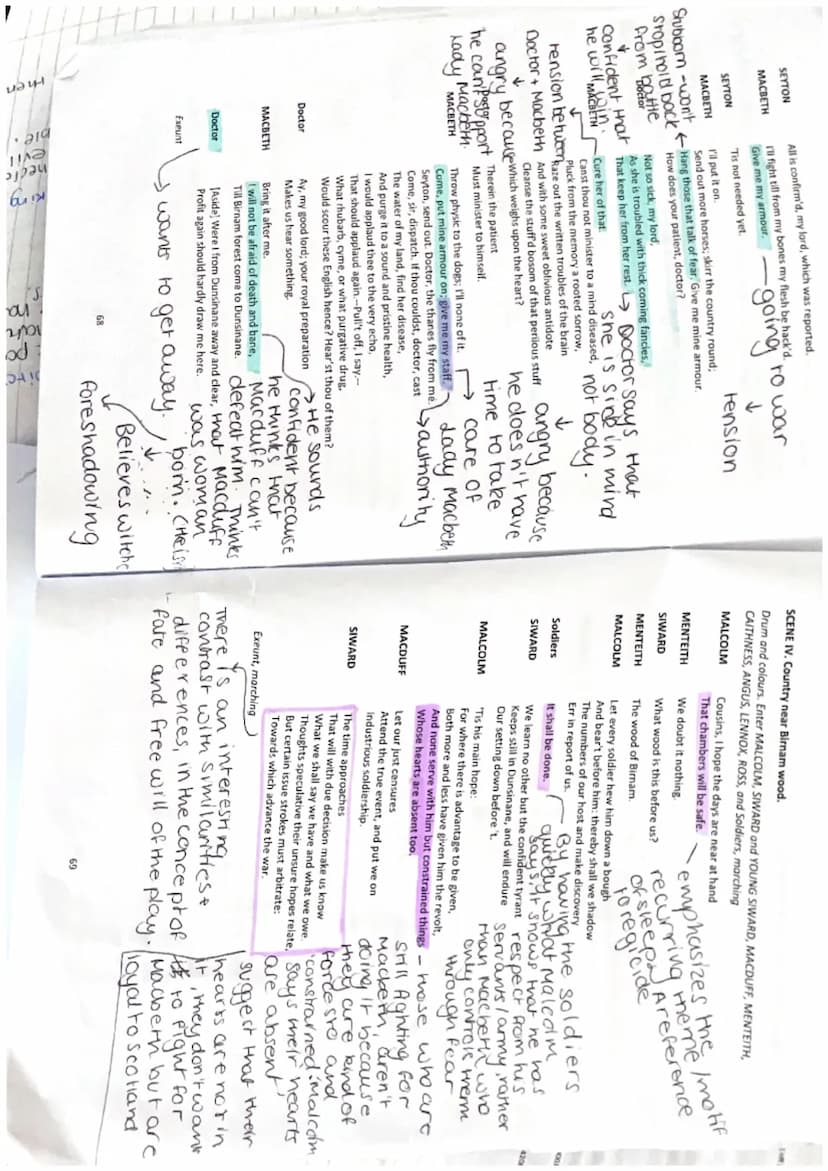 SEYTON All is confirm'd, my lord, which was reported.
MACBETH I'll fight till from my bones my flesh be hack'd.
Give me my armour.
SEYTON 'Tis not needed yet.
MACBETH I'll put it on.
Send out more horses; skirr the country round;
Hang those that talk of fear. Give me mine armour.
How does your patient, doctor?
Doctor Not so sick, my lord,
As she is troubled with thick coming fancies,
That keep her from her rest.
MACBETH Cure her of that.
Canst thou not minister to a mind diseased,
Pluck from the memory a rooted sorrow,
Raze out the written troubles of the brain
And with some sweet oblivious antidote
Cleanse the stuff'd bosom of that perilous stuff
Which weighs upon the heart?
Doctor Therein the patient
Must minister to himself.
MACBETH Throw physic to the dogs; I'll none of it.
Come, put mine armour on; give me my staff.
Seyton, send out. Doctor, the thanes fly from me.
Come, sir, dispatch. If thou couldst, doctor, cast
The water of my land, find her disease,
And purge it to a sound and pristine health,
I would applaud thee to the very echo,
That should applaud again.—Pull't off, I say.—
What rhubarb, cyme, or what purgative drug,
Would scour these English hence? Hear'st thou of them?
Doctor Ay, my good lord; your royal preparation
Makes us hear something.
MACBETH Bring it after me.
I will not be afraid of death and bane,
Till Birnam forest come to Dunsinane.
Doctor [Aside] Were I from Dunsinane away and clear,
Profit again should hardly draw me here.
Exeunt
68
going to war
tension
Stubborn - won't
stop/hold back
from battle
confident that
he will win.
Doctor says that
she is sick in mind
not body.
tension between
Doctor + Macbeth
angry because
he can't support
Lady Macbeth.
angry because
he doesn't have
time to take
care of
Lady Macbeth
authority
He sounds
confident because
he thinks that
Macduff can't
defeat him. Thinks
that Macduff
was woman
born. (He isn't
wants to get away.
Believes witche
foreshadowing
SCENE IV. Country near Birnam wood.
Drum and colours. Enter MALCOLM, SIWARD and YOUNG SIWARD, MACDUFF, MENTEITH,
CAITHNESS, ANGUS, LENNOX, ROSS, and Soldiers, marching
MALCOLM Cousins, I hope the days are near at hand
That chambers will be safe.
MENTEITH We doubt it nothing.
SIWARD What wood is this before us?
MENTEITH The wood of Birnam.
MALCOLM Let every soldier hew him down a bough
And bear't before him: thereby shall we shadow
The numbers of our host and make discovery
Err in report of us.
Soldiers It shall be done.
SIWARD We learn no other but the confident tyrant
Keeps still in Dunsinane, and will endure
Our setting down before 't.
MALCOLM 'Tis his main hope:
For where there is advantage to be given,
Both more and less have given him the revolt,
And none serve with him but constrained things
Whose hearts are absent too.
MACDUFF Let our just censures
Attend the true event, and put we on
Industrious soldiership.
SIWARD The time approaches
That will with due decision make us know
What we shall say we have and what we owe.
Thoughts speculative their unsure hopes relate,
But certain issue strokes must arbitrate:
Towards which advance the war.
Exeunt, marching
69
emphasizes the
recurring theme/motif
of sleep, A reference
to regicide
By having the soldiers
what Malcolm
says it shows that he has
respect from his
servants/army rather
than Macbeth who
only controls them
through fear
- those who are
still fighting for
Macbeth, aren't
doing it because
they are kind of
forced to and
'constrained'. Malcolm
says their hearts
are 'absent'
suggest that their
hearts are not in
it, they don't want
to fight for
Macbeth but are
loyal to Scotland
There is an interesting
contrast with similarities +
differences, in the concept of
fate and free will of the play.